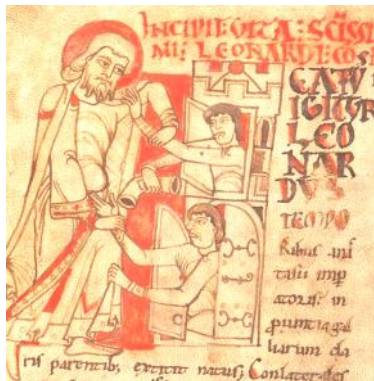 INCIPIT: VITA: SCISSI
MI: LEONARDI: CO
EATVS
IGITUR
LEO
NAR
DVS
TEMPO
Ribus ans
tasii imp
atoris in
puintia gal
liarum cla
ris parentib; extitit natus; Conlaterales